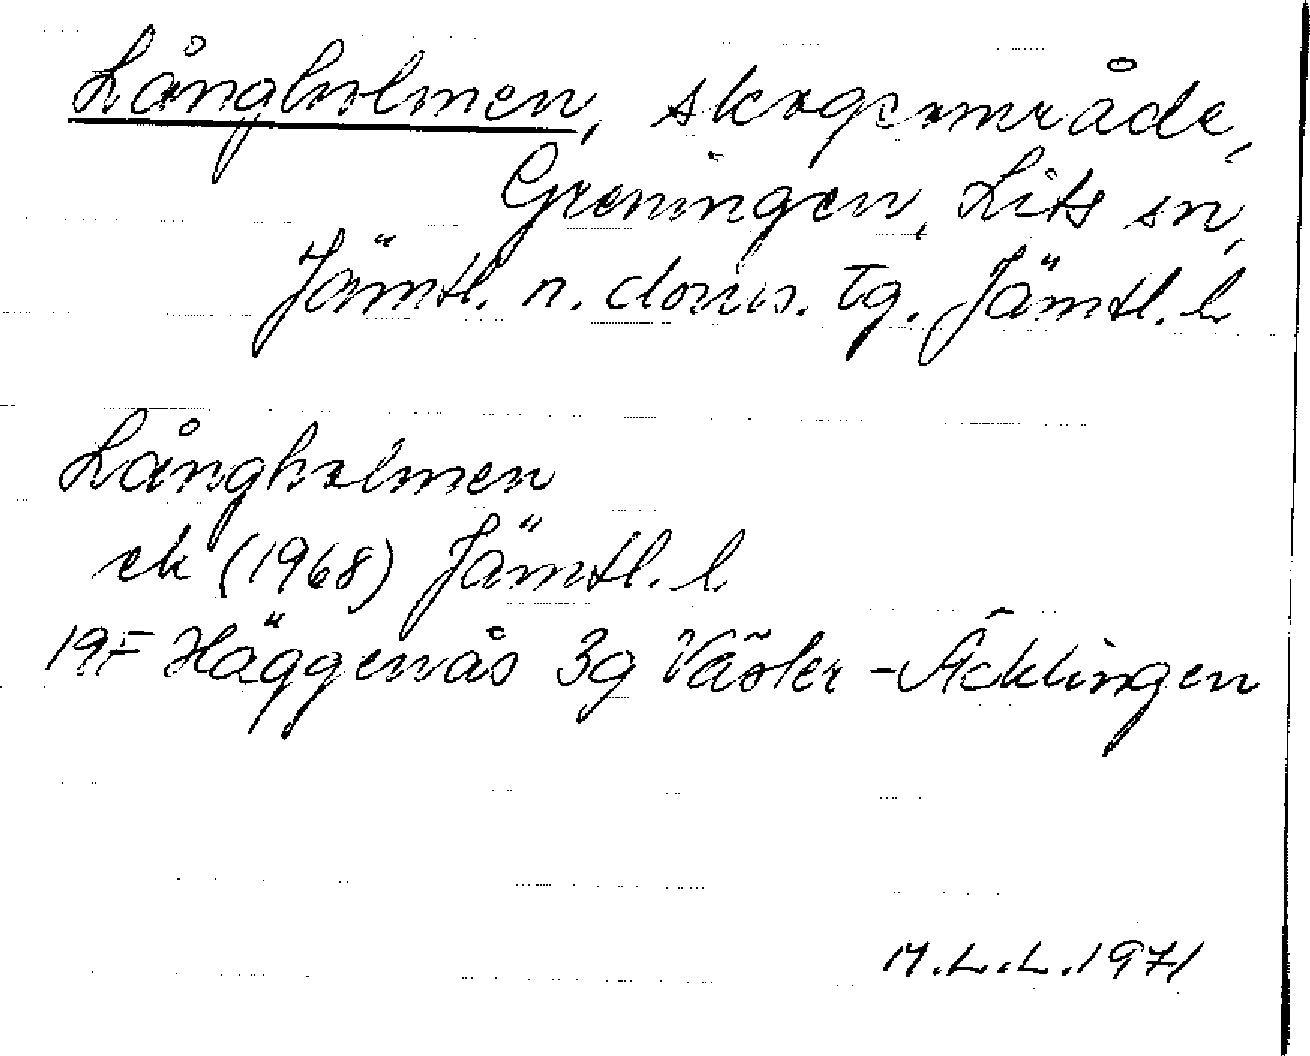 Långholmen, skogsområde,
Greningen, Lits sn,
Jämtl. n. doms. tg. Jämtl. l
Långholmen
ek (1968) Jämtl. l
19F Häggenås 3g Väster-Äcklingen
M.L.L. 1971